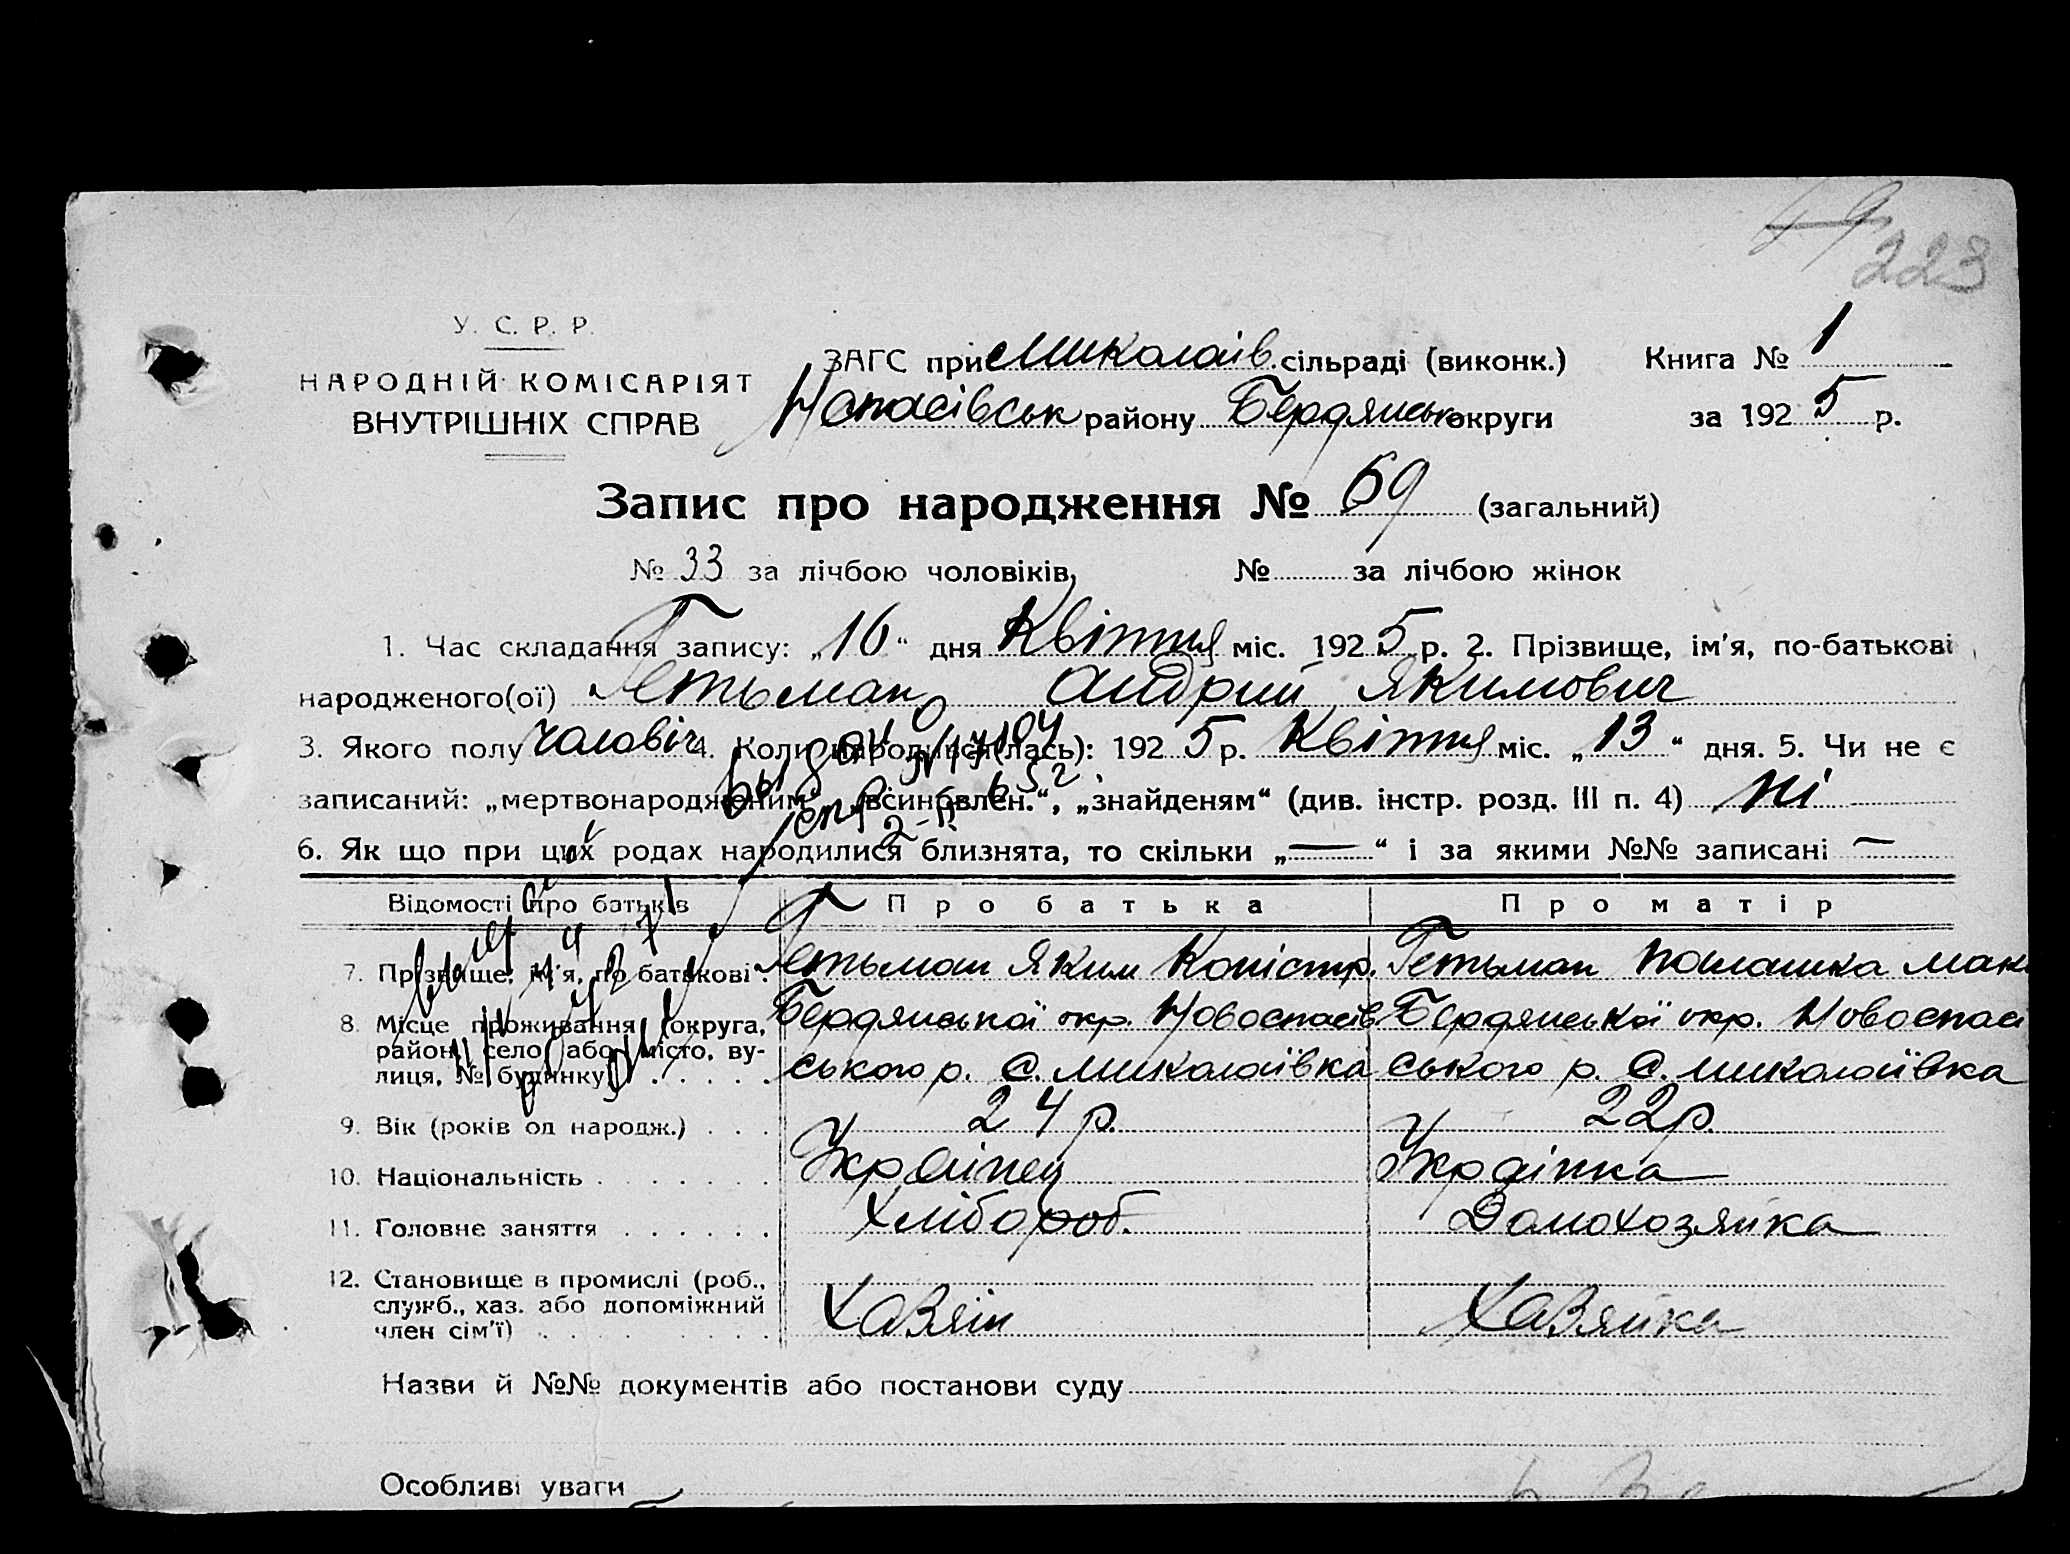 223
У. С. Р. Р.
НАРОДНІЙ КОМІСАРІЯТ
ВНУТРІШНІХ СПРАВ
ЗАГС при Миколаїв. сільраді (виконк.) Книга № 1
Нспасівськ району Бердянськ округи за 1925 р.
Запис про народження № 69 (загальний)
№ 33 за лічбою чоловіків, № за лічбою жінок
1. Час складання запису: „16“ дня Квітня міс. 1925 р. 2. Прізвище, ім'я, по-батькові
народженого(ої) Гетьман Андрий Якимович
3. Якого полу чоловіч 4. Коли народився(лась): 1925 р. Квітня міс. „13“ дня. 5. Чи не є
записаний: „мертвонародженим“, „всиновлен.“, „знайденям“ (див. інстр. розд. III п. 4) ні
6. Як що при цих родах народилися близнята, то скільки „—“ і за якими №№ записані —
Відомості про батьків Про батька Про матір
7. Прізвище, ім'я, по батькові. Гетьман Яким Гетьман
8. Місце проживання (округа, район, село або місто, вулиця, № будинку) Бердянської окр. Новоспасів Бердянської окр. Новоспасі
ського р. С. Миколаївка ського р. С. Миколаївка
9. Вік (років од народж.) 24 р. 22 р.
10. Національність Українец Українка
11. Головне заняття Хлібороб. Домохозяйка
12. Становище в промислі (роб., служб., хаз. або допоміжний член сім'ї) Хазяїн Хазяйка
Назви й №№ документів або постанови суду
Особливі уваги